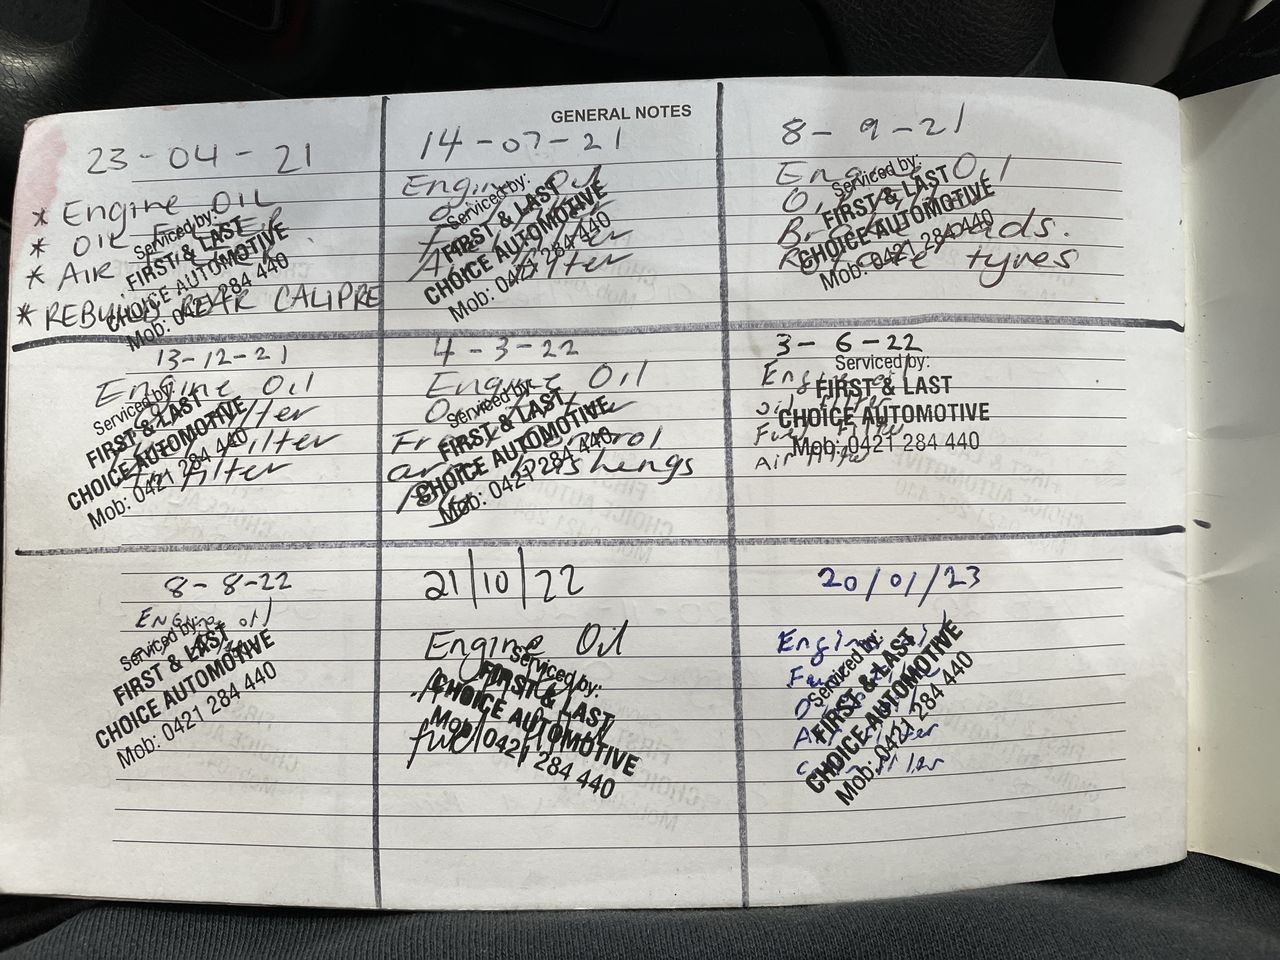 GENERAL NOTES
23-04-21
* Engine OIL
* OIL FILTER
* AIR
* REBUILD REAR CALIPRE
Serviced by:
FIRST & LAST
CHOICE AUTOMOTIVE
Mob: 0421 284 440
14-07-21
Engine Oil
Filter
Air Filter
Serviced by:
FIRST & LAST
CHOICE AUTOMOTIVE
Mob: 0421 284 440
8-9-21
Engine Oil
Brake Pads.
tyres
Serviced by:
FIRST & LAST
CHOICE AUTOMOTIVE
Mob: 0421 284 440
13-12-21
Engine Oil
Filter
Filter
Filter
Serviced by:
FIRST & LAST
CHOICE AUTOMOTIVE
Mob: 0421 284 440
4-3-22
Engine Oil
Front Control
arm Bushengs
Serviced by:
FIRST & LAST
CHOICE AUTOMOTIVE
Mob: 0421 284 440
3-6-22
Engine
oil filter
Fuel Filter
Air filter
Serviced by:
FIRST & LAST
CHOICE AUTOMOTIVE
Mob: 0421 284 440
8-8-22
Engine oil
Serviced by:
FIRST & LAST
CHOICE AUTOMOTIVE
Mob: 0421 284 440
21/10/22
Engine Oil
fuel
Serviced by:
FIRST & LAST
CHOICE AUTOMOTIVE
Mob: 0421 284 440
20/01/23
Engine
Serviced by:
FIRST & LAST
CHOICE AUTOMOTIVE
Mob: 0421 284 440